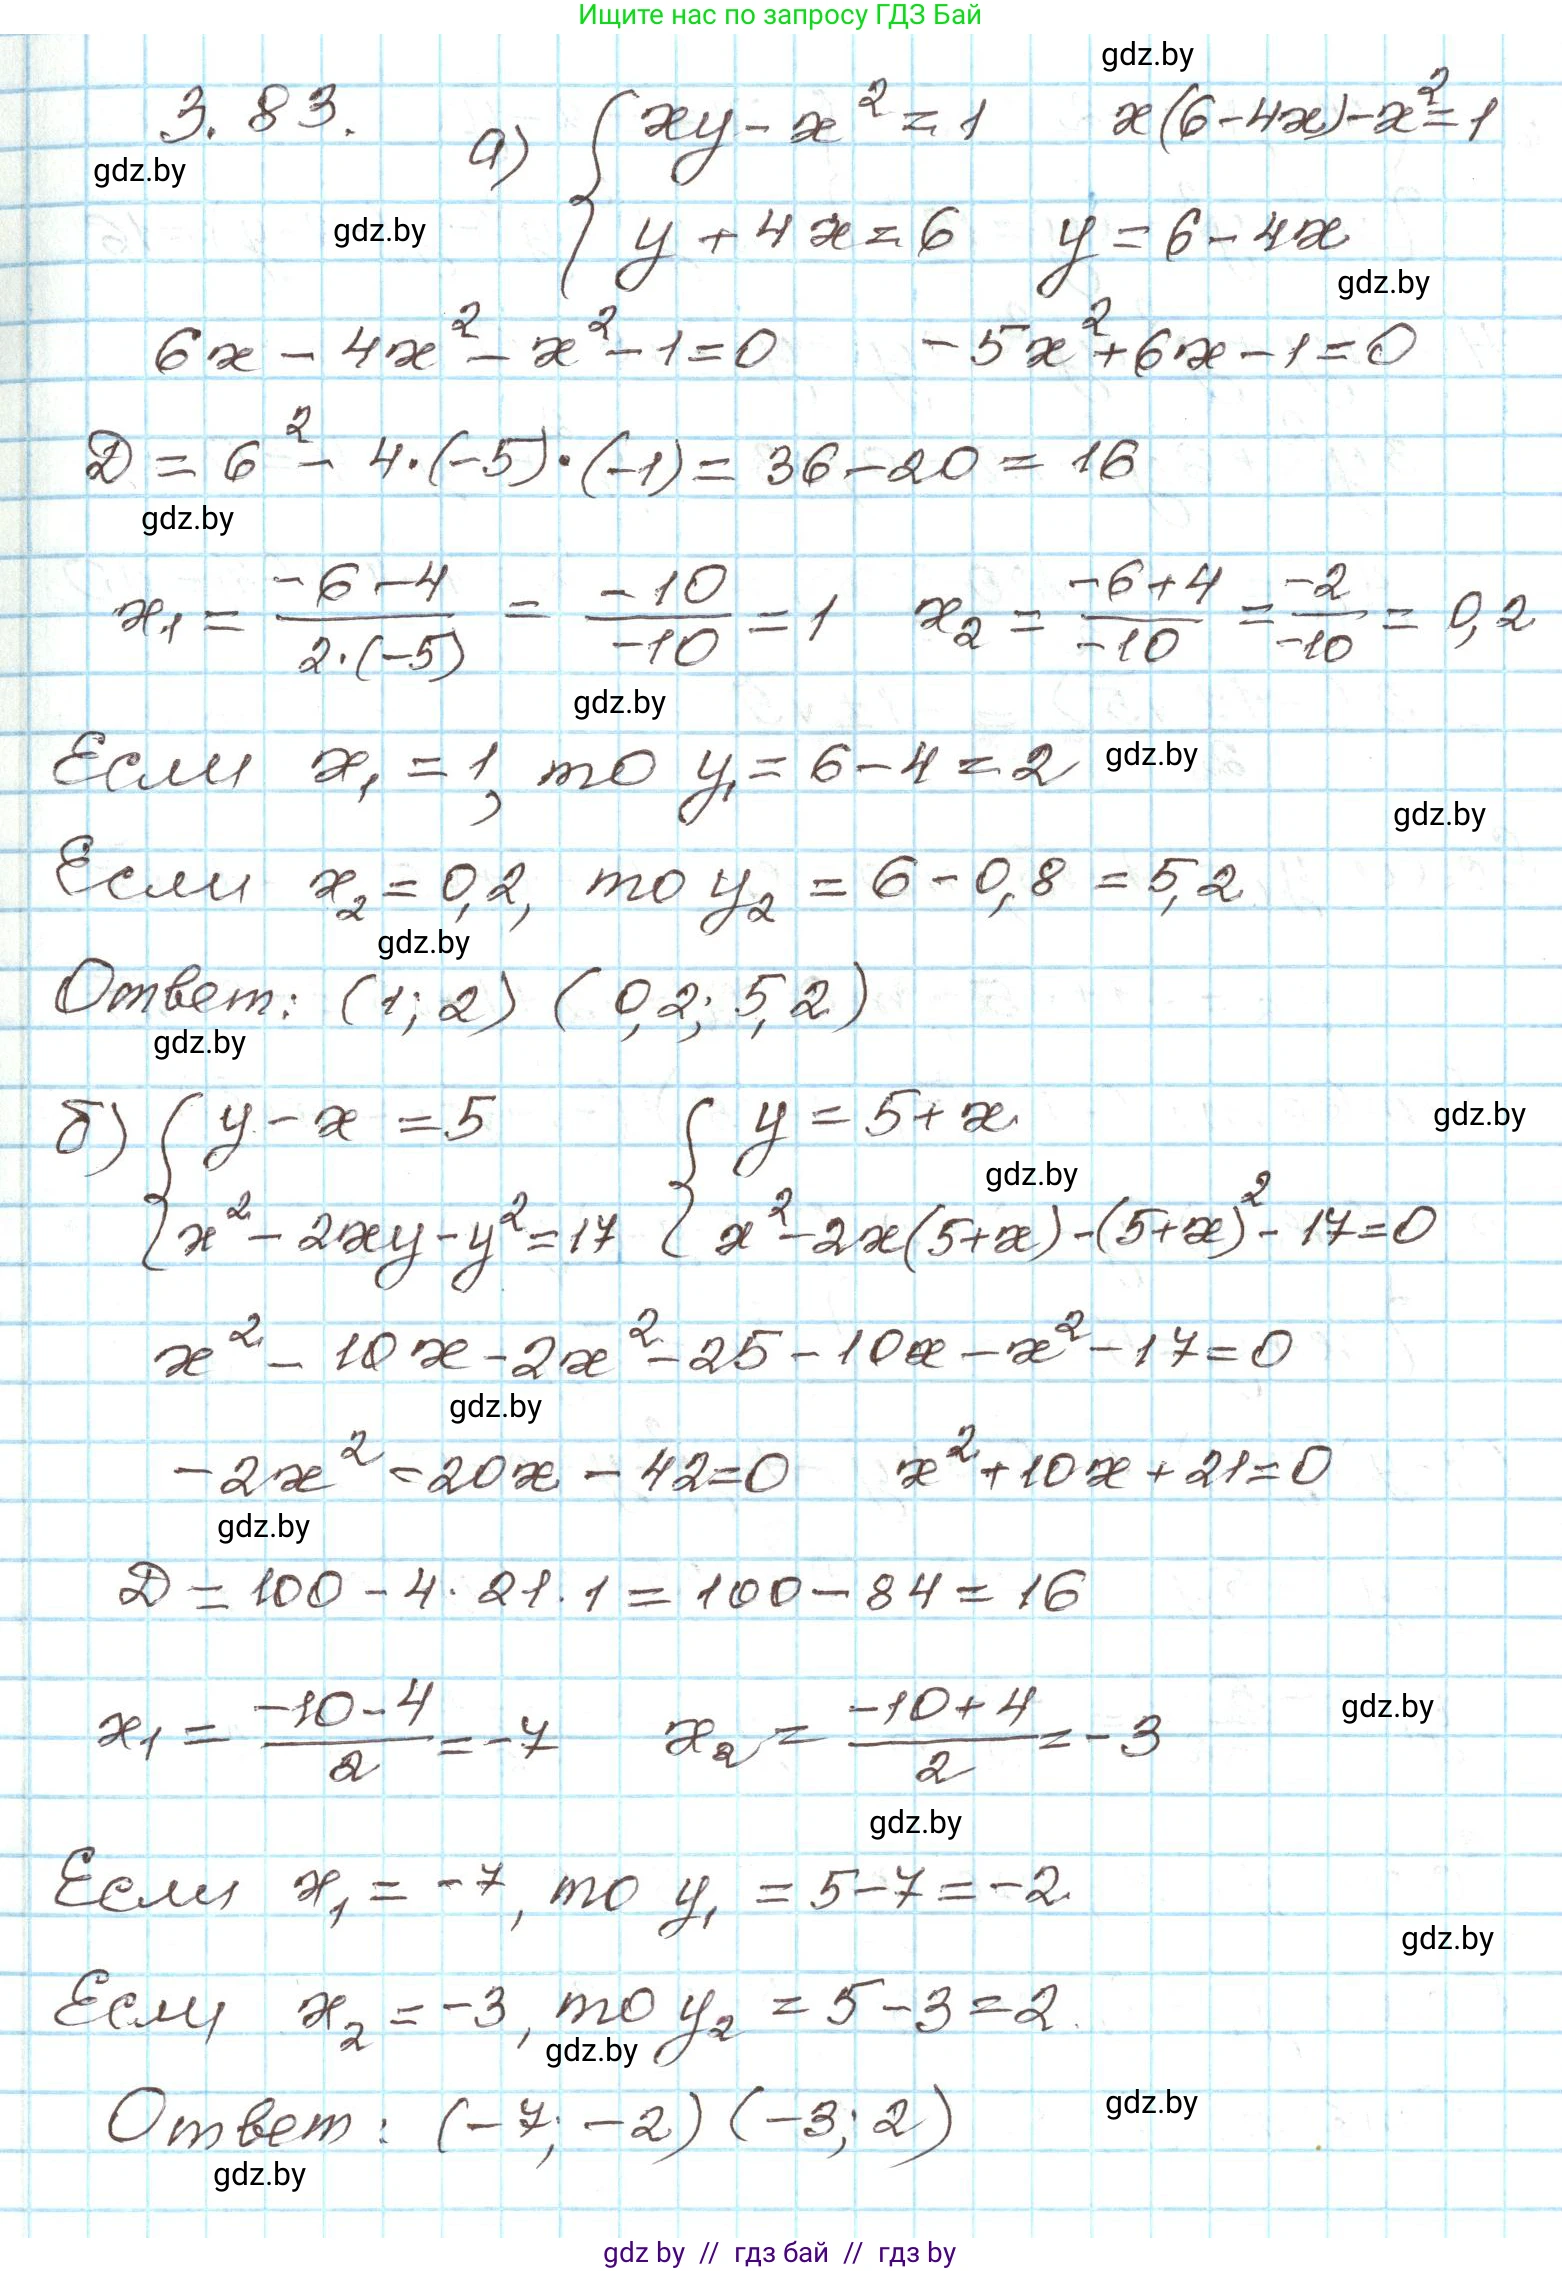 Ищите нас по запросу ГДЗ Бай
gdz.by
3.83. а) { xy - x² = 1    x(6-4x)-x²=1
gdz.by
gdz.by
y + 4x = 6    y = 6 - 4x
gdz.by
6x - 4x² - x² - 1 = 0    -5x² + 6x - 1 = 0
D = 6² - 4·(-5)·(-1) = 36 - 20 = 16
gdz.by
x₁ = (-6-4)/(2·(-5)) = (-10)/(-10) = 1    x₂ = (-6+4)/(-10) = (-2)/(-10) = 0,2
gdz.by
Если x₁ = 1, то y₁ = 6 - 4 = 2
gdz.by
gdz.by
Если x₂ = 0,2, то y₂ = 6 - 0,8 = 5,2
gdz.by
Ответ: (1; 2) (0,2; 5,2)
gdz.by
б) { y - x = 5    { y = 5 + x
gdz.by
gdz.by
x² - 2xy - y² = 17    x² - 2x(5+x) - (5+x)² - 17 = 0
x² - 10x - 2x² - 25 - 10x - x² - 17 = 0
gdz.by
-2x² - 20x - 42 = 0    x² + 10x + 21 = 0
gdz.by
D = 100 - 4·21·1 = 100 - 84 = 16
x₁ = (-10-4)/2 = -7    x₂ = (-10+4)/2 = -3
gdz.by
gdz.by
Если x₁ = -7, то y₁ = 5 - 7 = -2
gdz.by
Если x₂ = -3, то y₂ = 5 - 3 = 2.
gdz.by
Ответ: (-7; -2) (-3; 2)
gdz.by
gdz.by
gdz by // гдз бай // гдз by